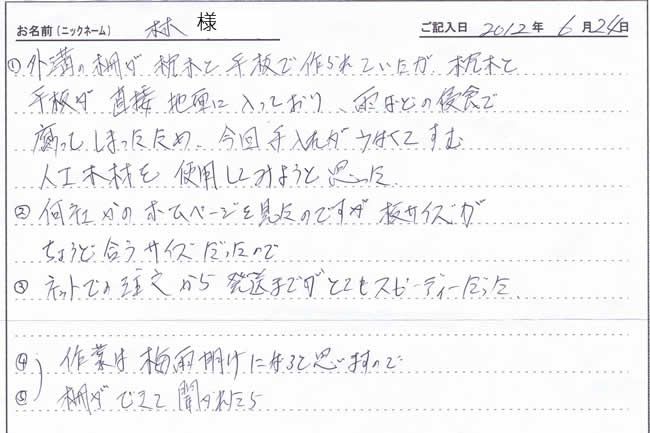 お名前(ニックネーム) 林 様 ご記入日 2012年 6月24日
①外溝の柵が 枕木と平板で作られていたが 枕木と
平板が 直接 地面に入っており、雨などの侵食で
腐ってしまったため、今回手入れが少なくてすむ
人工木材を 使用してみようと思った。
②何社かのホームページを見たのですが 板サイズが
ちょうど合うサイズだったので
③ネットでの注文から発送までがとてもスピーディーだった。
④ 作業は 梅雨明けになると思いますので
⑤ 柵ができて